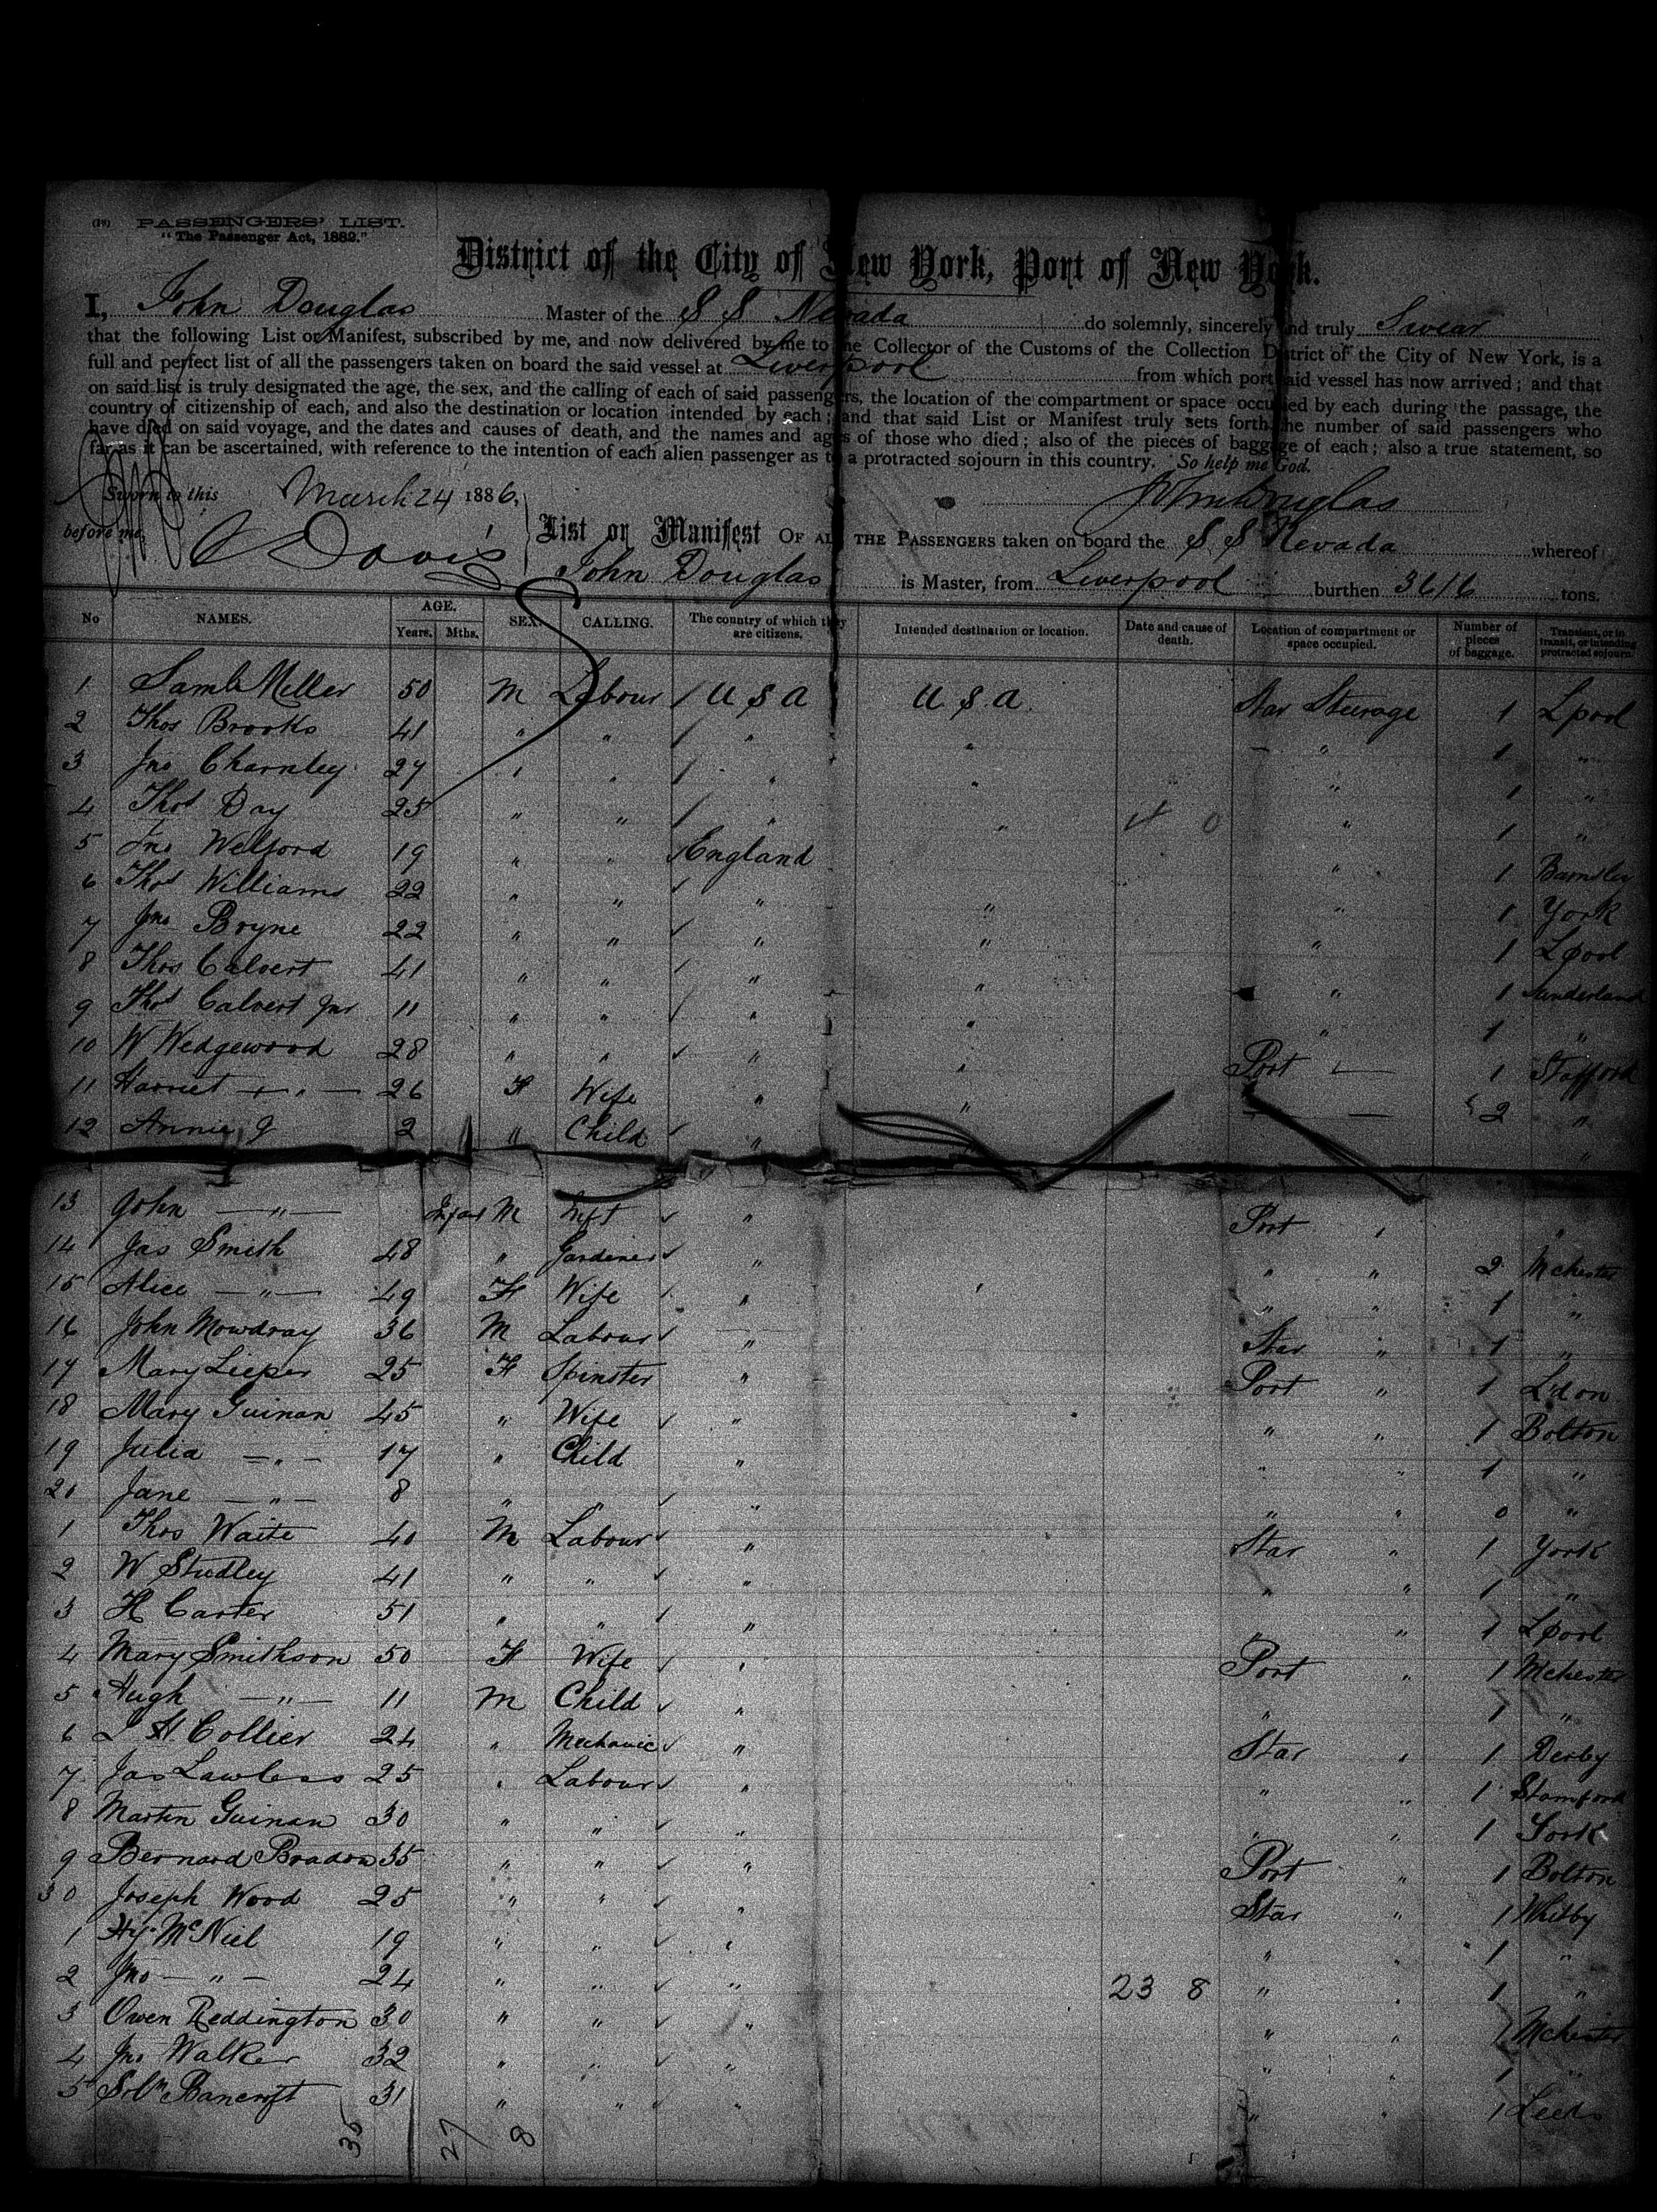 (18) PASSENGERS' LIST.
"The Passenger Act, 1882."
District of the City of New York, Port of New York.
I, John Douglas Master of the S S Nevada do solemnly, sincerely and truly Swear
that the following List or Manifest, subscribed by me, and now delivered by me to the Collector of the Customs of the Collection District of the City of New York, is a
full and perfect list of all the passengers taken on board the said vessel at Liverpool from which port said vessel has now arrived; and that
on said list is truly designated the age, the sex, and the calling of each of said passengers, the location of the compartment or space occupied by each during the passage, the
country of citizenship of each, and also the destination or location intended by each; and that said List or Manifest truly sets forth the number of said passengers who
have died on said voyage, and the dates and causes of death, and the names and ages of those who died; also of the pieces of baggage of each; also a true statement, so
far as it can be ascertained, with reference to the intention of each alien passenger as to a protracted sojourn in this country. So help me God.
Sworn to this March 24 1886, John Douglas
before me, Davis List or Manifest OF ALL THE PASSENGERS taken on board the S S Nevada whereof
John Douglas is Master, from Liverpool burthen 3616 tons.
No NAMES. AGE. Years. Mths. SEX. CALLING. The country of which they are citizens. Intended destination or location. Date and cause of death. Location of compartment or space occupied. Number of pieces of baggage. Transient, or in transit, or intending protracted sojourn.
1 Saml Miller 50 M Labour / U S A U. S. A. Star Steerage 1 Lpool
2 Thos Brooks 41 " " / " " " 1 "
3 Jno Charnley 27 " " / " " " 1 "
4 Thos Day 25 " " / " " " 1 "
5 Jno Welford 19 " " / England " 1 Barnsley
6 Thos Williams 22 " " ✓ " " " 1 York
7 Jno Bryne 22 " " ✓ " " " 1 Lpool
8 Thos Calvert 41 " " ✓ " " " 1 Sunderland
9 Thos Calvert Jnr 11 " " ✓ " " " 1 "
10 W Wedgewood 28 " " ✓ " " Port — 1 Stafford
11 Harriet — " — 26 F Wife " " — — 2 "
12 Annie J 2 " Child ✓ " "
13 John — " — Infant M Inft ✓ " Port " "
14 Jas Smith 48 " Gardener ✓ " " " 2 Mchester
15 Alice — " — 49 F Wife ✓ " " " 1 "
16 John Mowdray 36 M Labour ✓ " Star " 1 "
17 Mary Lieper 25 F Spinster " Port " 1 Ldon
18 Mary Guinan 45 " Wife ✓ " " " 1 Bolton
19 Julia — " — 17 " Child " " " 1 "
20 Jane — " — 8 " " ✓ " " " 0 "
1 Thos Waite 40 M Labour ✓ " Star " 1 York
2 W Studley 41 " " ✓ " " " 1 "
3 H Carter 51 " " ✓ " " " 1 Lpool
4 Mary Smithson 50 F Wife ✓ " Port " 1 Mchester
5 Hugh — " — 11 M Child ✓ " " 1 "
6 L H Collier 24 " Mechanic ✓ " Star " 1 Derby
7 Jas Lawless 25 " Labour ✓ " " " 1 Stamford
8 Martin Guinan 30 " " ✓ " " " 1 York
9 Bernard Bradon 35 " " ✓ " Port " 1 Bolton
30 Joseph Wood 25 " " ✓ " Star " 1 Whitby
1 Hy. McNiel 19 " " ✓ " " " 1 "
2 Jno — " — 24 " " ✓ " 23 8 " " 1 "
3 Owen Reddington 30 " " ✓ " " " 1 Mchester
4 Jno Walker 32 " " ✓ " " " 1 "
5 Solm Bancroft 31 " " ✓ " " " 1 Leeds
35 27 8